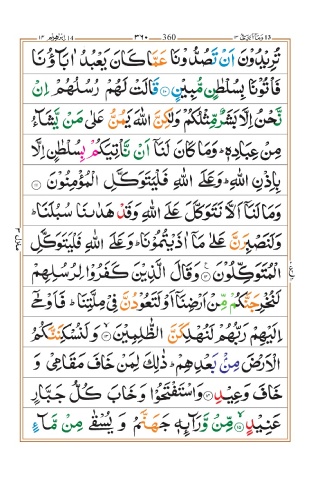 ابراهيم ١٤ ٣٦٠ 360 وما ابرئ ١٣
تُرِيْدُوْنَ اَنْ تَصُدُّوْنَا عَمَّا كَانَ يَعْبُدُ اٰبَآؤُنَا
فَاْتُوْنَا بِسُلْطٰنٍ مُّبِيْنٍ ۝١٠ قَالَتْ لَهُمْ رُسُلُهُمْ اِنْ
نَّحْنُ اِلَّا بَشَرٌ مِّثْلُكُمْ وَلٰكِنَّ اللّٰهَ يَمُنُّ عَلٰى مَنْ يَّشَآءُ
مِنْ عِبَادِهٖ ؕ وَمَا كَانَ لَنَاۤ اَنْ نَّاْتِيَكُمْ بِسُلْطٰنٍ اِلَّا
بِاِذْنِ اللّٰهِ ؕ وَعَلَى اللّٰهِ فَلْيَتَوَكَّلِ الْمُؤْمِنُوْنَ ۝١١
وَمَا لَنَاۤ اَلَّا نَتَوَكَّلَ عَلَى اللّٰهِ وَقَدْ هَدٰىنَا سُبُلَنَا ؕ
وَلَنَصْبِرَنَّ عَلٰى مَاۤ اٰذَيْتُمُوْنَا ؕ وَعَلَى اللّٰهِ فَلْيَتَوَكَّلِ
الْمُتَوَكِّلُوْنَ ۝١٢ وَقَالَ الَّذِيْنَ كَفَرُوْا لِرُسُلِهِمْ
لَنُخْرِجَنَّكُمْ مِّنْ اَرْضِنَاۤ اَوْ لَتَعُوْدُنَّ فِيْ مِلَّتِنَا ؕ فَاَوْحٰۤى
اِلَيْهِمْ رَبُّهُمْ لَنُهْلِكَنَّ الظّٰلِمِيْنَ ۝١٣ وَلَنُسْكِنَنَّكُمُ
الْاَرْضَ مِنْۢ بَعْدِهِمْ ؕ ذٰلِكَ لِمَنْ خَافَ مَقَامِيْ وَ
خَافَ وَعِيْدِ ۝١٤ وَاسْتَفْتَحُوْا وَخَابَ كُلُّ جَبَّارٍ
عَنِيْدٍ ۝١٥ مِّنْ وَّرَآئِهٖ جَهَنَّمُ وَ يُسْقٰى مِنْ مَّآءٍ